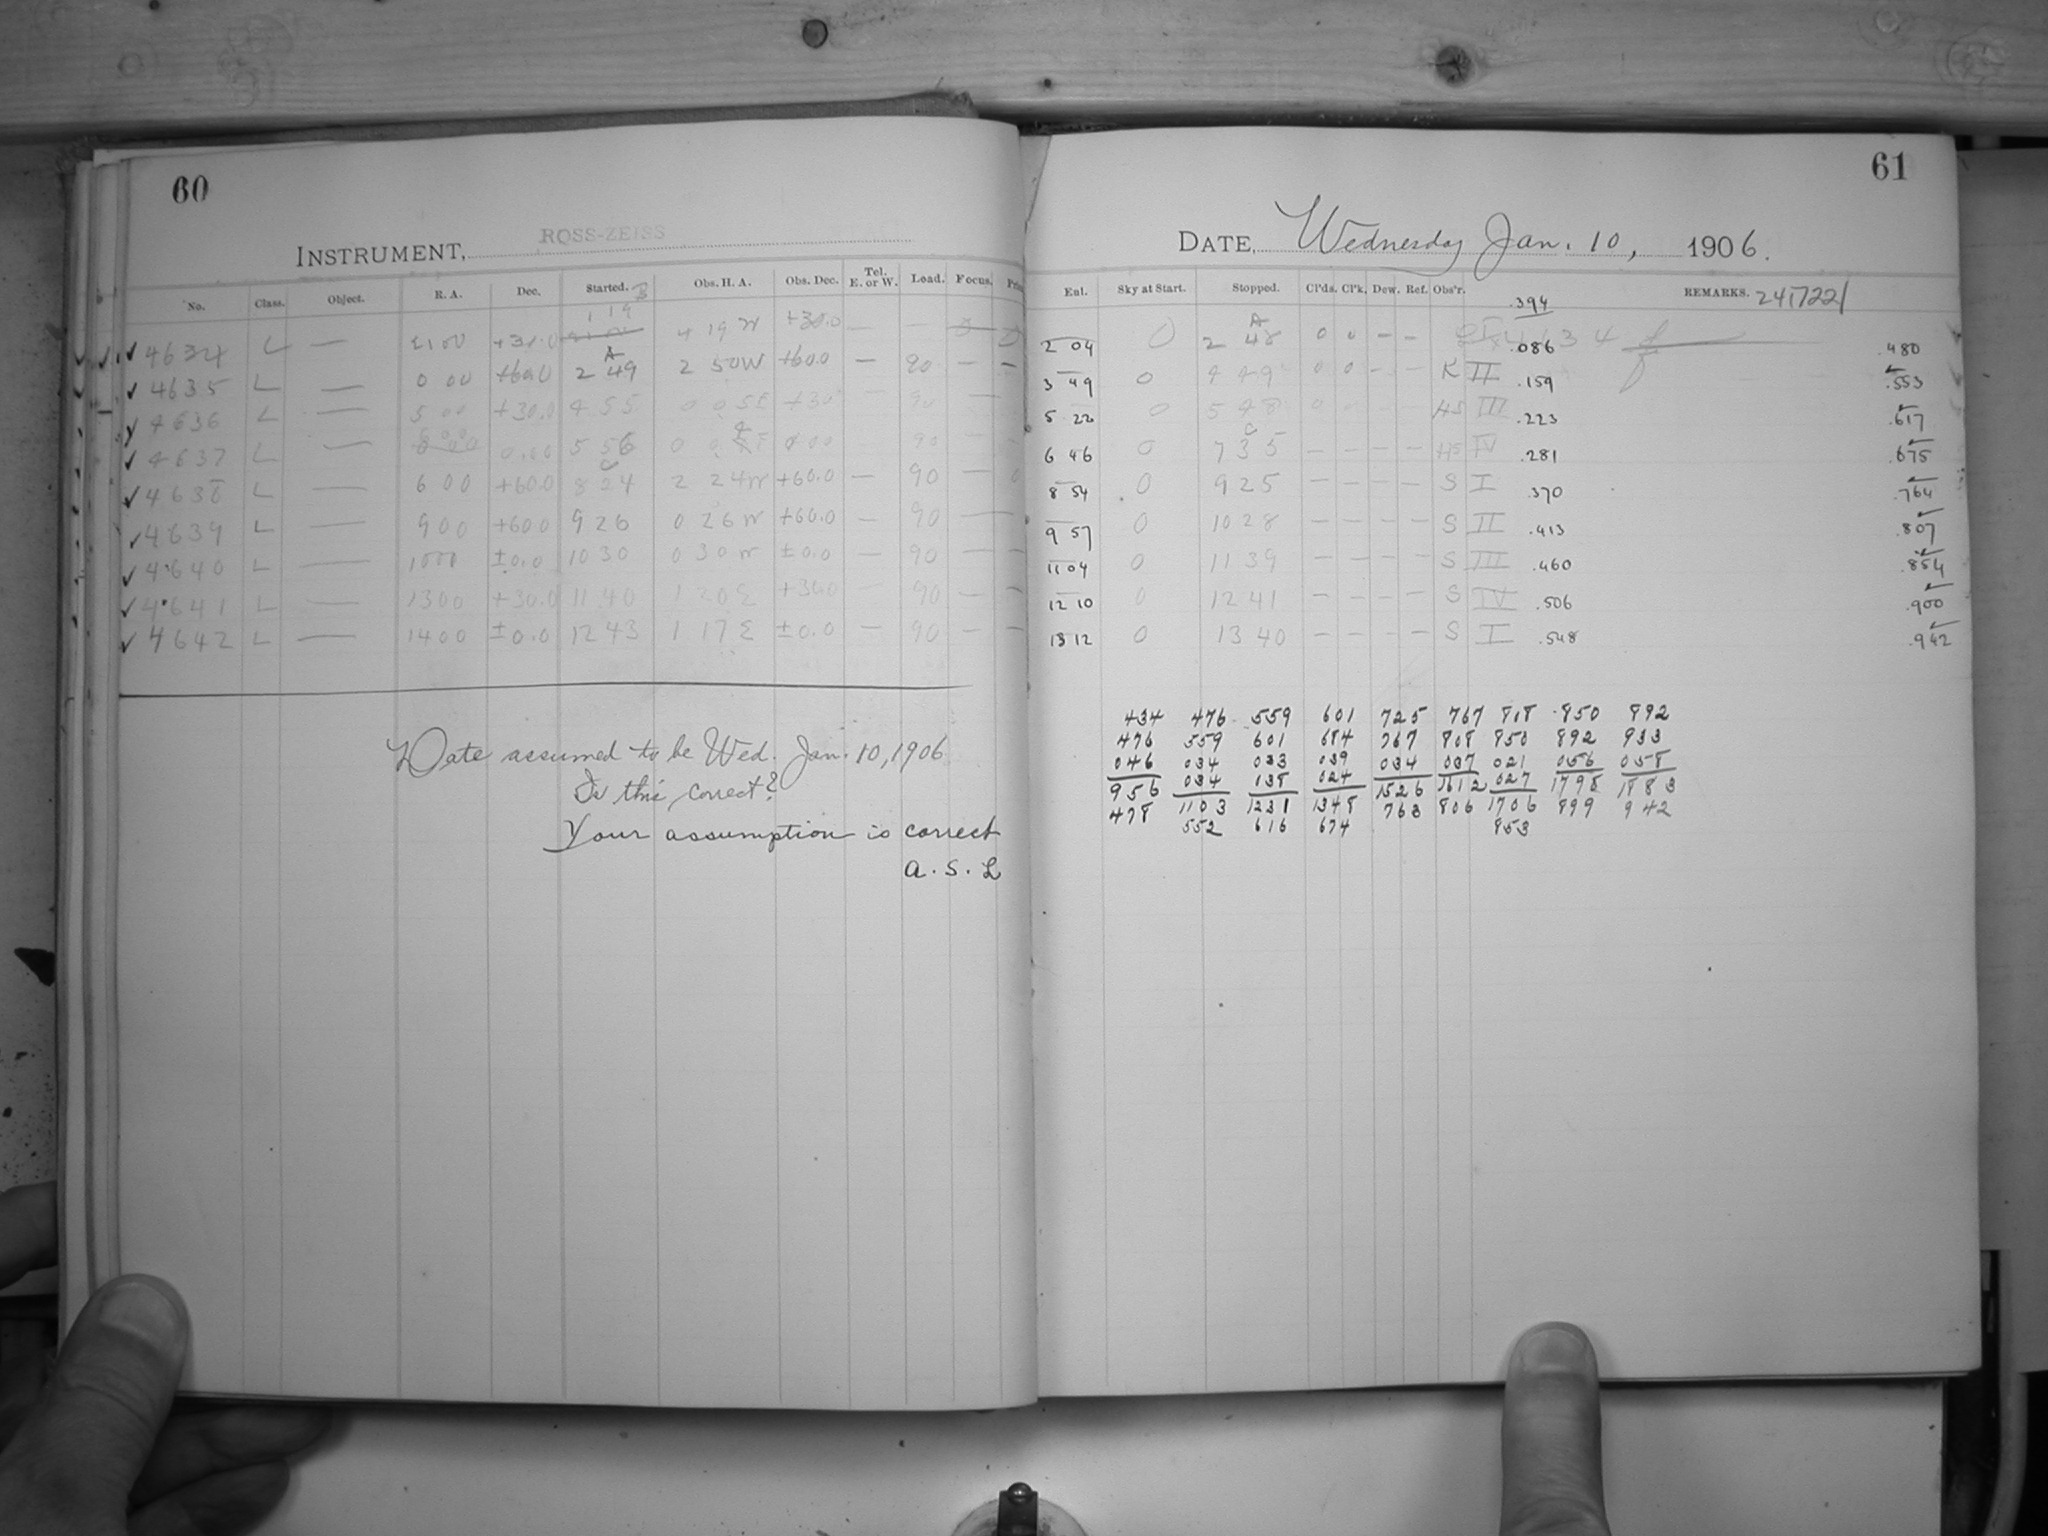 60
INSTRUMENT, ROSS-ZEISS
No. Class. Object. R. A. Dec. Started. Obs. H. A. Obs. Dec. Tel. E. or W. Load. Focus.
4634 L — +30.0 1 19 4 19 W +30.0 —
4635 L — 0 00 +60.0 2 49 2 50 W +60.0 — 90 — —
4636 L — 5 00 +30.0 4 55 0 05 E +30 90 —
4637 L — 0.00 5 56 0 00 90 —
4638 L — 6 00 +60.0 8 24 2 24 W +60.0 — 90 —
4639 L — 9 00 +60.0 9 26 0 26 W +60.0 — 90 —
4640 L — 1000 ±0.0 10 30 0 30 W ±0.0 — 90 — —
4641 L — 1300 +30.0 11 40 1 20 E +30.0 90 — —
4642 L — 1400 ±0.0 12 43 1 17 E ±0.0 — 90 — —
Date assumed to be Wed. Jan. 10, 1906
Is this correct?
Your assumption is correct
A. S. L
61
DATE, Wednesday Jan. 10, 1906.
Enl. Sky at Start. Stopped. Cl'ds. Cl'k. Dew. Ref. Obs'r. REMARKS. 2417221
.394
2 04 0 2 48 0 0 – – .086 .480
3 49 0 4 49 0 0 – – K II .159 .553
5 22 0 5 48 0 HS III .223 .617
6 46 0 7 35 – – – – HS IV .281 .675
8 54 0 9 25 – – – – S I .370 .764
9 57 0 10 28 – – – – S II .413 .807
11 04 0 11 39 – – – – S III .460 .854
12 10 0 12 41 – – – – S IV .506 .900
13 12 0 13 40 – – – – S I .548 .942
434 476 559 601 725 767 818 850 892
476 559 601 684 767 808 850 892 933
046 034 033 039 034 037 021 056 058
956 034 138 024 1526 1612 027 1798 1883
478 1103 1231 1348 763 806 1706 899 942
552 616 674 853